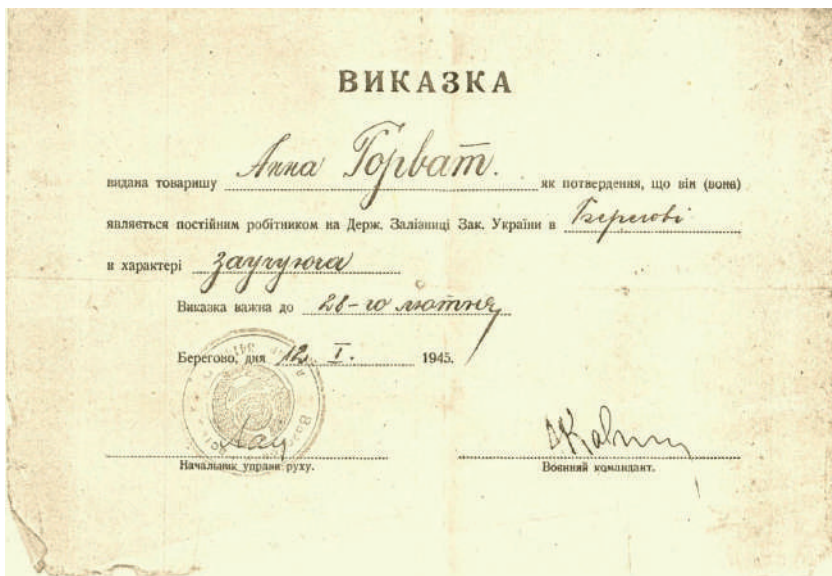 ВИКАЗКА
видана товаришу Анна Горват. як потвердення, що він (вона)
являється постійним робітником на Держ. Залізниці Зак. України в Берегові
в характері
Виказка важна до 28-го лютня
Берегово, дня 12. I. 1945.
Начальник управи руху.
Воєнний командант.